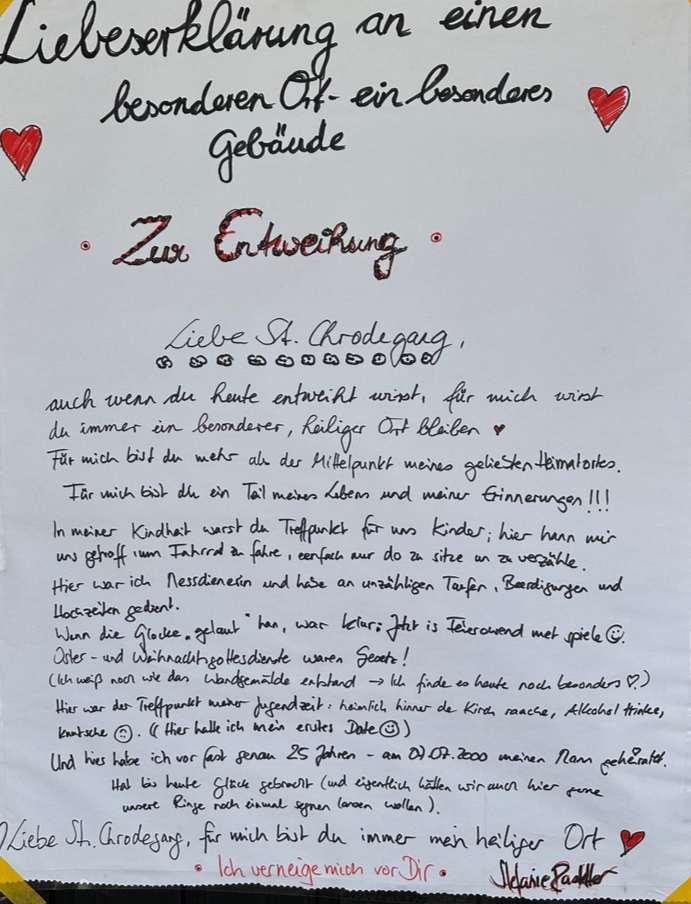 Liebeserklärung an einen
besonderen Ort - ein besonderes
Gebäude
Zur Entweihung
Liebe St. Chrodegang,
auch wenn du heute entweiht wirst, für mich wirst
du immer ein besonderer, heiliger Ort bleiben ♥
Für mich bist du mehr als der Mittelpunkt meines geliebten Heimatortes.
Für mich bist du ein Teil meines Lebens und meiner Erinnerungen!!!
In meiner Kindheit warst du Treffpunkt für uns Kinder; hier hann mir
uns getroff zum Fahrrad zu fahre, eenfach nur do zu sitze an zu verzähle.
Hier war ich Messdienerin und habe an unzähligen Taufen, Beerdigungen und
Hochzeiten gedient.
Wenn die Glocke „gelaut“ han, war klar: Jetzt is Feierowend met spiele ☺.
Oster- und Weihnachtsgottesdienste waren Gesetz!
(Ich weiß noch wie das Wandgemälde entstand → Ich finde es heute noch besonders ♡.)
Hier war der Treffpunkt meiner Jugendzeit: heimlich hinner de Kirch raache, Alkohol trinke,
knutsche ☺. (Hier hatte ich mein erstes Date ☺)
Und hier habe ich vor fast genau 25 Jahren - am 07.07.2000 meinen Mann geheiratet.
Hat bis heute Glück gebracht (und eigentlich hätten wir auch hier gerne
unsere Ringe noch einmal segnen lassen wollen).
Liebe St. Chrodegang, für mich bist du immer mein heiliger Ort ♥
• Ich verneige mich vor Dir •
Melanie